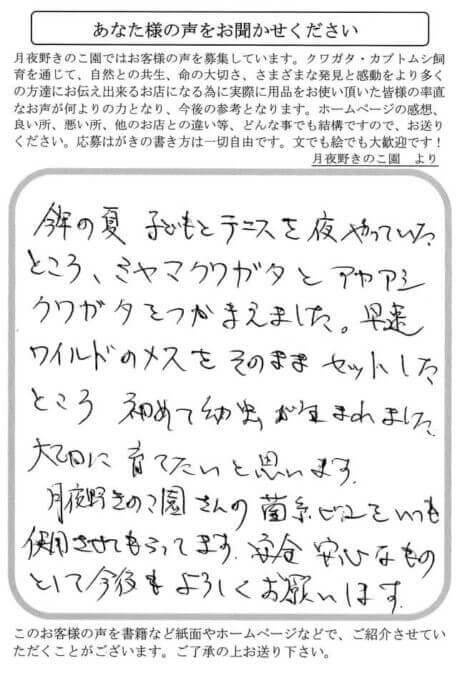 あなた様の声をお聞かせください
月夜野きのこ園ではお客様の声を募集しています。クワガタ・カブトムシ飼
育を通じて、自然との共生、命の大切さ、さまざまな発見と感動をより多く
の方達にお伝え出来るお店になる為に実際に用品をお使い頂いた皆様の率直
なお声が何よりの力となり、今後の参考となります。ホームページの感想、
良い所、悪い所、他のお店との違い等、どんな事でも結構ですので、お送り
ください。応募はがきの書き方は一切自由です。文でも絵でも大歓迎です！
月夜野きのこ園　より
今年の夏 子どもとテニスを夜やっていた
ところ、ミヤマクワガタと アカアシ
クワガタをつかまえました。早速
ワイルドのメスをそのままセットした
ところ 初めて幼虫が生まれました。
大切に育てたいと思います。
月夜野きのこ園さんの 菌糸ビンをいつも
使用させてもらってます。安全 安心なもの
として今後もよろしくお願いします。
このお客様の声を書籍など紙面やホームページなどで、ご紹介させてい
ただくことがございます。ご了承の上お送り下さい。